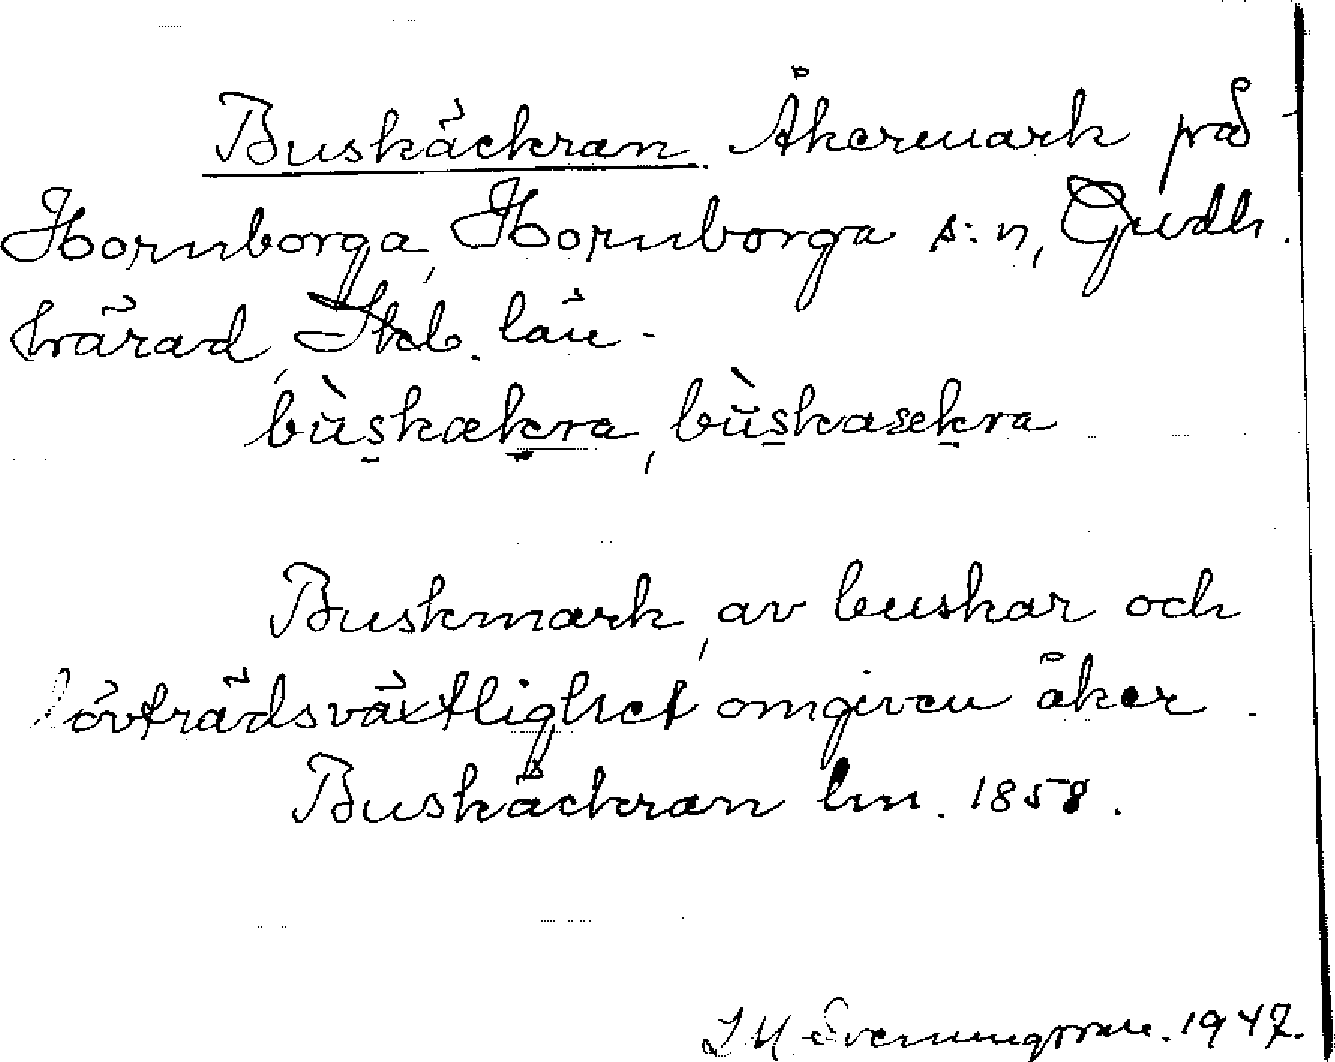 Buskäckran. Åkermark på
Hornborga, Hornborga s:n, Gudh.
härad, Skb. län.
bùskækra, bùskaækra
Buskmark, av buskar och
lövträdsväxtlighet omgiven åker.
Buskäckran lm. 1858.
Svenningsson. 1947.